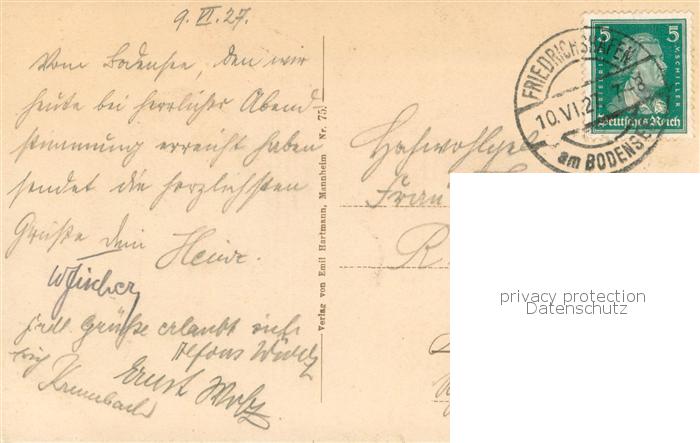 9. VI. 27.
Vom Bodensee, den wir
heute bei herrlicher Abend-
stimmung erreicht haben
sendet die herzlichsten
Grüße Dein Heine.
W Fischer
Grüße erlaubt sich
Alfons
Ernst
Krumbach
Verlag von Emil Hartmann, Mannheim Nr. 75
Hochwohlgeb
Frau
R
5 5
F. v. SCHILLER
Deutsches Reich
FRIEDRICHSHAFEN
10. VI. 2 7-8
am BODENSEE
privacy protection
Datenschutz